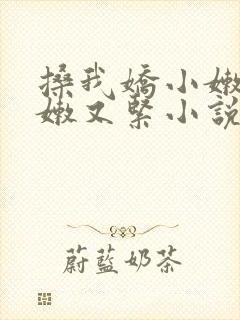 搡我嬌小嫩
嫩又緊小說
蔚藍奶茶